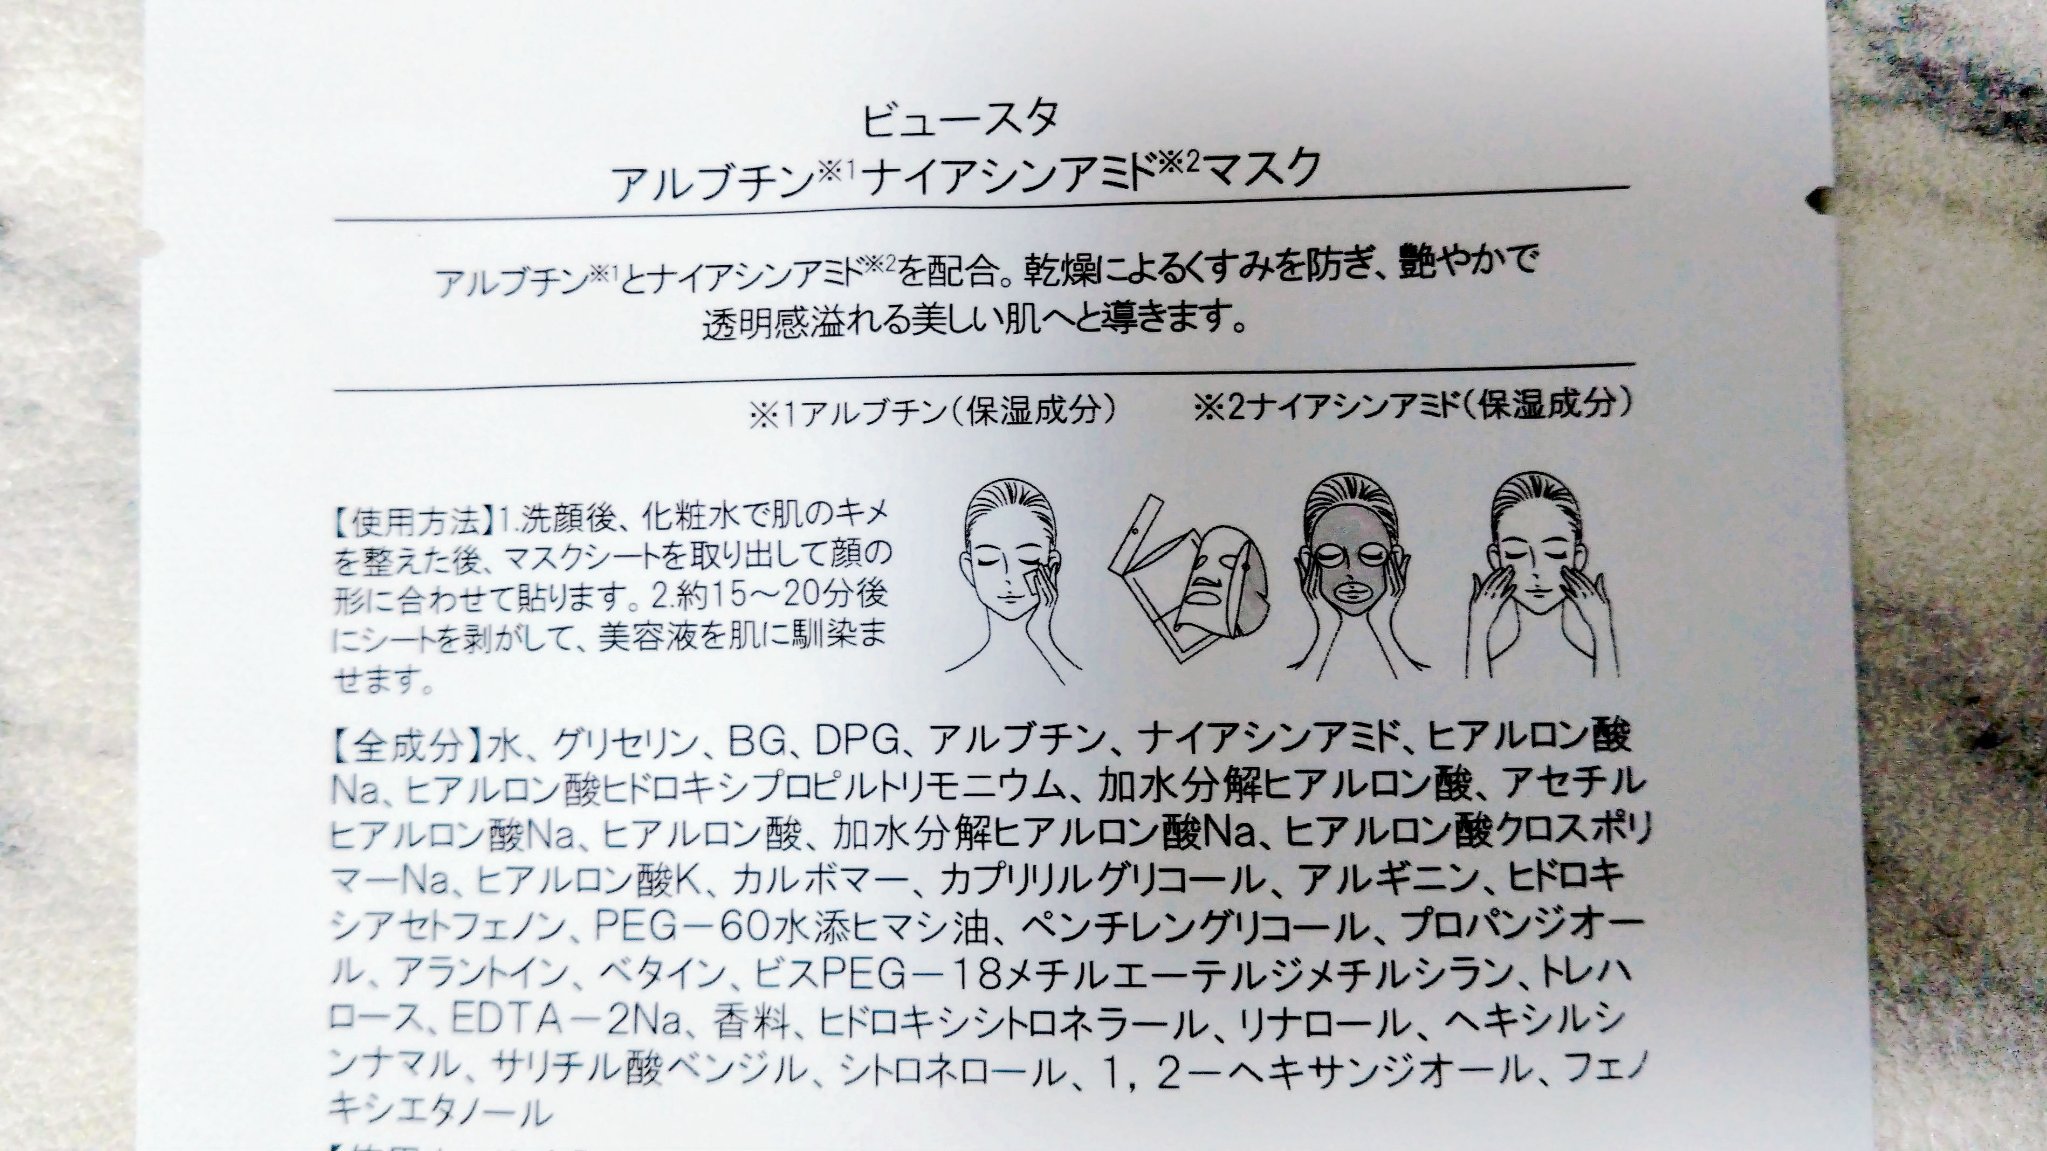 ビュースタ
アルブチン※1ナイアシンアミド※2マスク
アルブチン※1とナイアシンアミド※2を配合。乾燥によるくすみを防ぎ、艶やかで
透明感溢れる美しい肌へと導きます。
※1アルブチン(保湿成分) ※2ナイアシンアミド(保湿成分)
【使用方法】1.洗顔後、化粧水で肌のキメ
を整えた後、マスクシートを取り出して顔の
形に合わせて貼ります。2.約15～20分後
にシートを剥がして、美容液を肌に馴染ま
せます。
【全成分】水、グリセリン、BG、DPG、アルブチン、ナイアシンアミド、ヒアルロン酸
Na、ヒアルロン酸ヒドロキシプロピルトリモニウム、加水分解ヒアルロン酸、アセチル
ヒアルロン酸Na、ヒアルロン酸、加水分解ヒアルロン酸Na、ヒアルロン酸クロスポリ
マーNa、ヒアルロン酸K、カルボマー、カプリリルグリコール、アルギニン、ヒドロキ
シアセトフェノン、PEG－60水添ヒマシ油、ペンチレングリコール、プロパンジオー
ル、アラントイン、ベタイン、ビスPEG－18メチルエーテルジメチルシラン、トレハ
ロース、EDTA－2Na、香料、ヒドロキシシトロネラール、リナロール、ヘキシルシ
ンナマル、サリチル酸ベンジル、シトロネロール、1，2－ヘキサンジオール、フェノ
キシエタノール